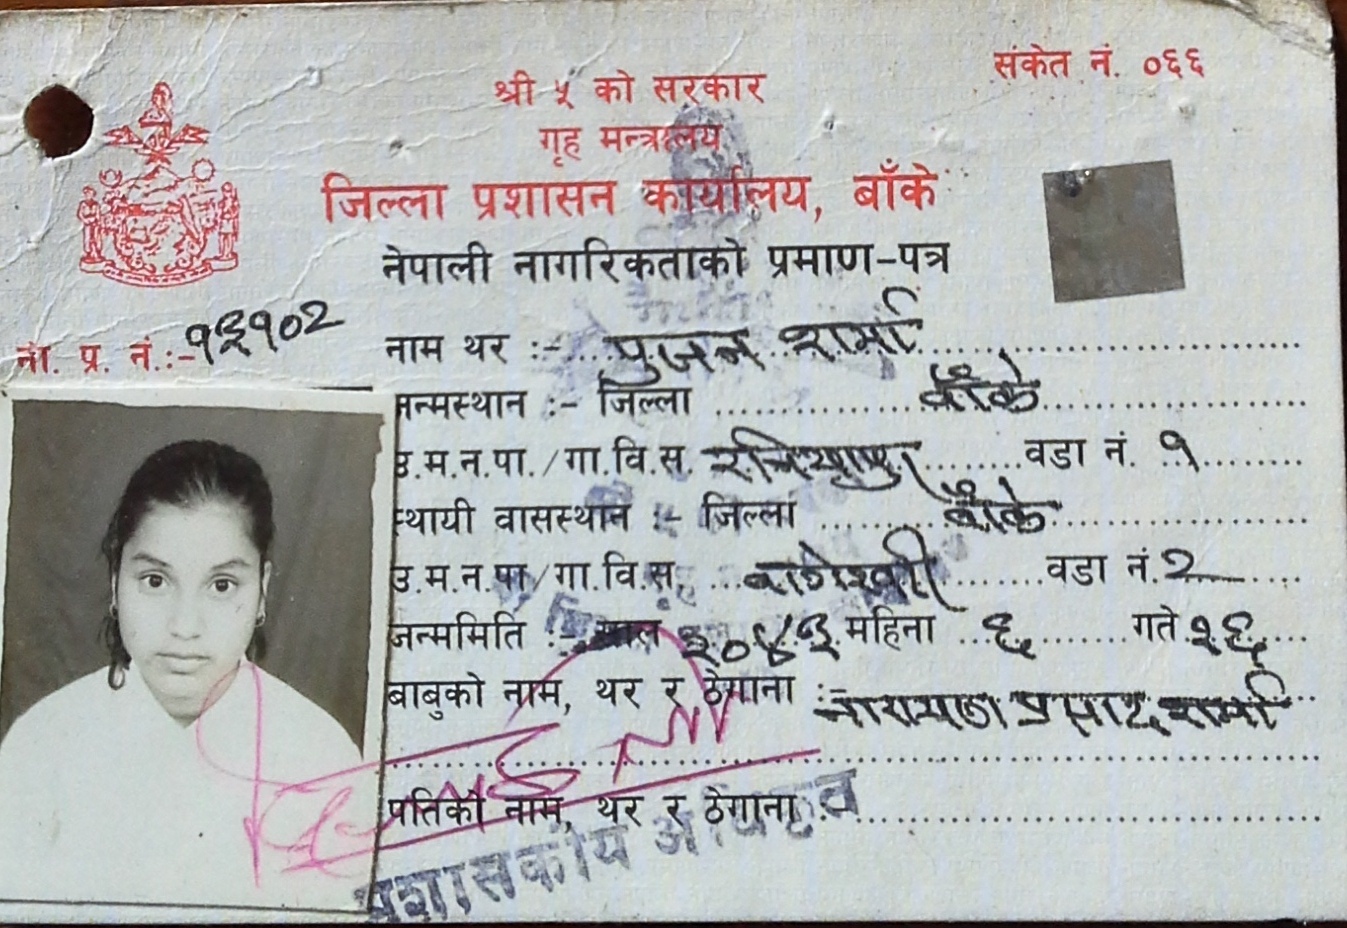 संकेत नं. ०६६
श्री ५ को सरकार
गृह मन्त्रालय
जिल्ला प्रशासन कार्यालय, बाँके
नेपाली नागरिकताको प्रमाण-पत्र
ना. प्र. नं.:- १३१०२
नाम थर :- पुजन शर्मा
जन्मस्थान :- जिल्ला बाँके
उ.म.न.पा./गा.वि.स. रनियापुर वडा नं. १
स्थायी वासस्थान :- जिल्ला बाँके
उ.म.न.पा/गा.वि.स. बागेश्वरी वडा नं. 2
जन्ममिति :- साल २०४३ महिना ६ गते २६
बाबुको नाम, थर र ठेगाना :- नारायण प्रसाद शर्मा
पतिको नाम, थर र ठेगाना :-
प्रशासकीय अधिकृत